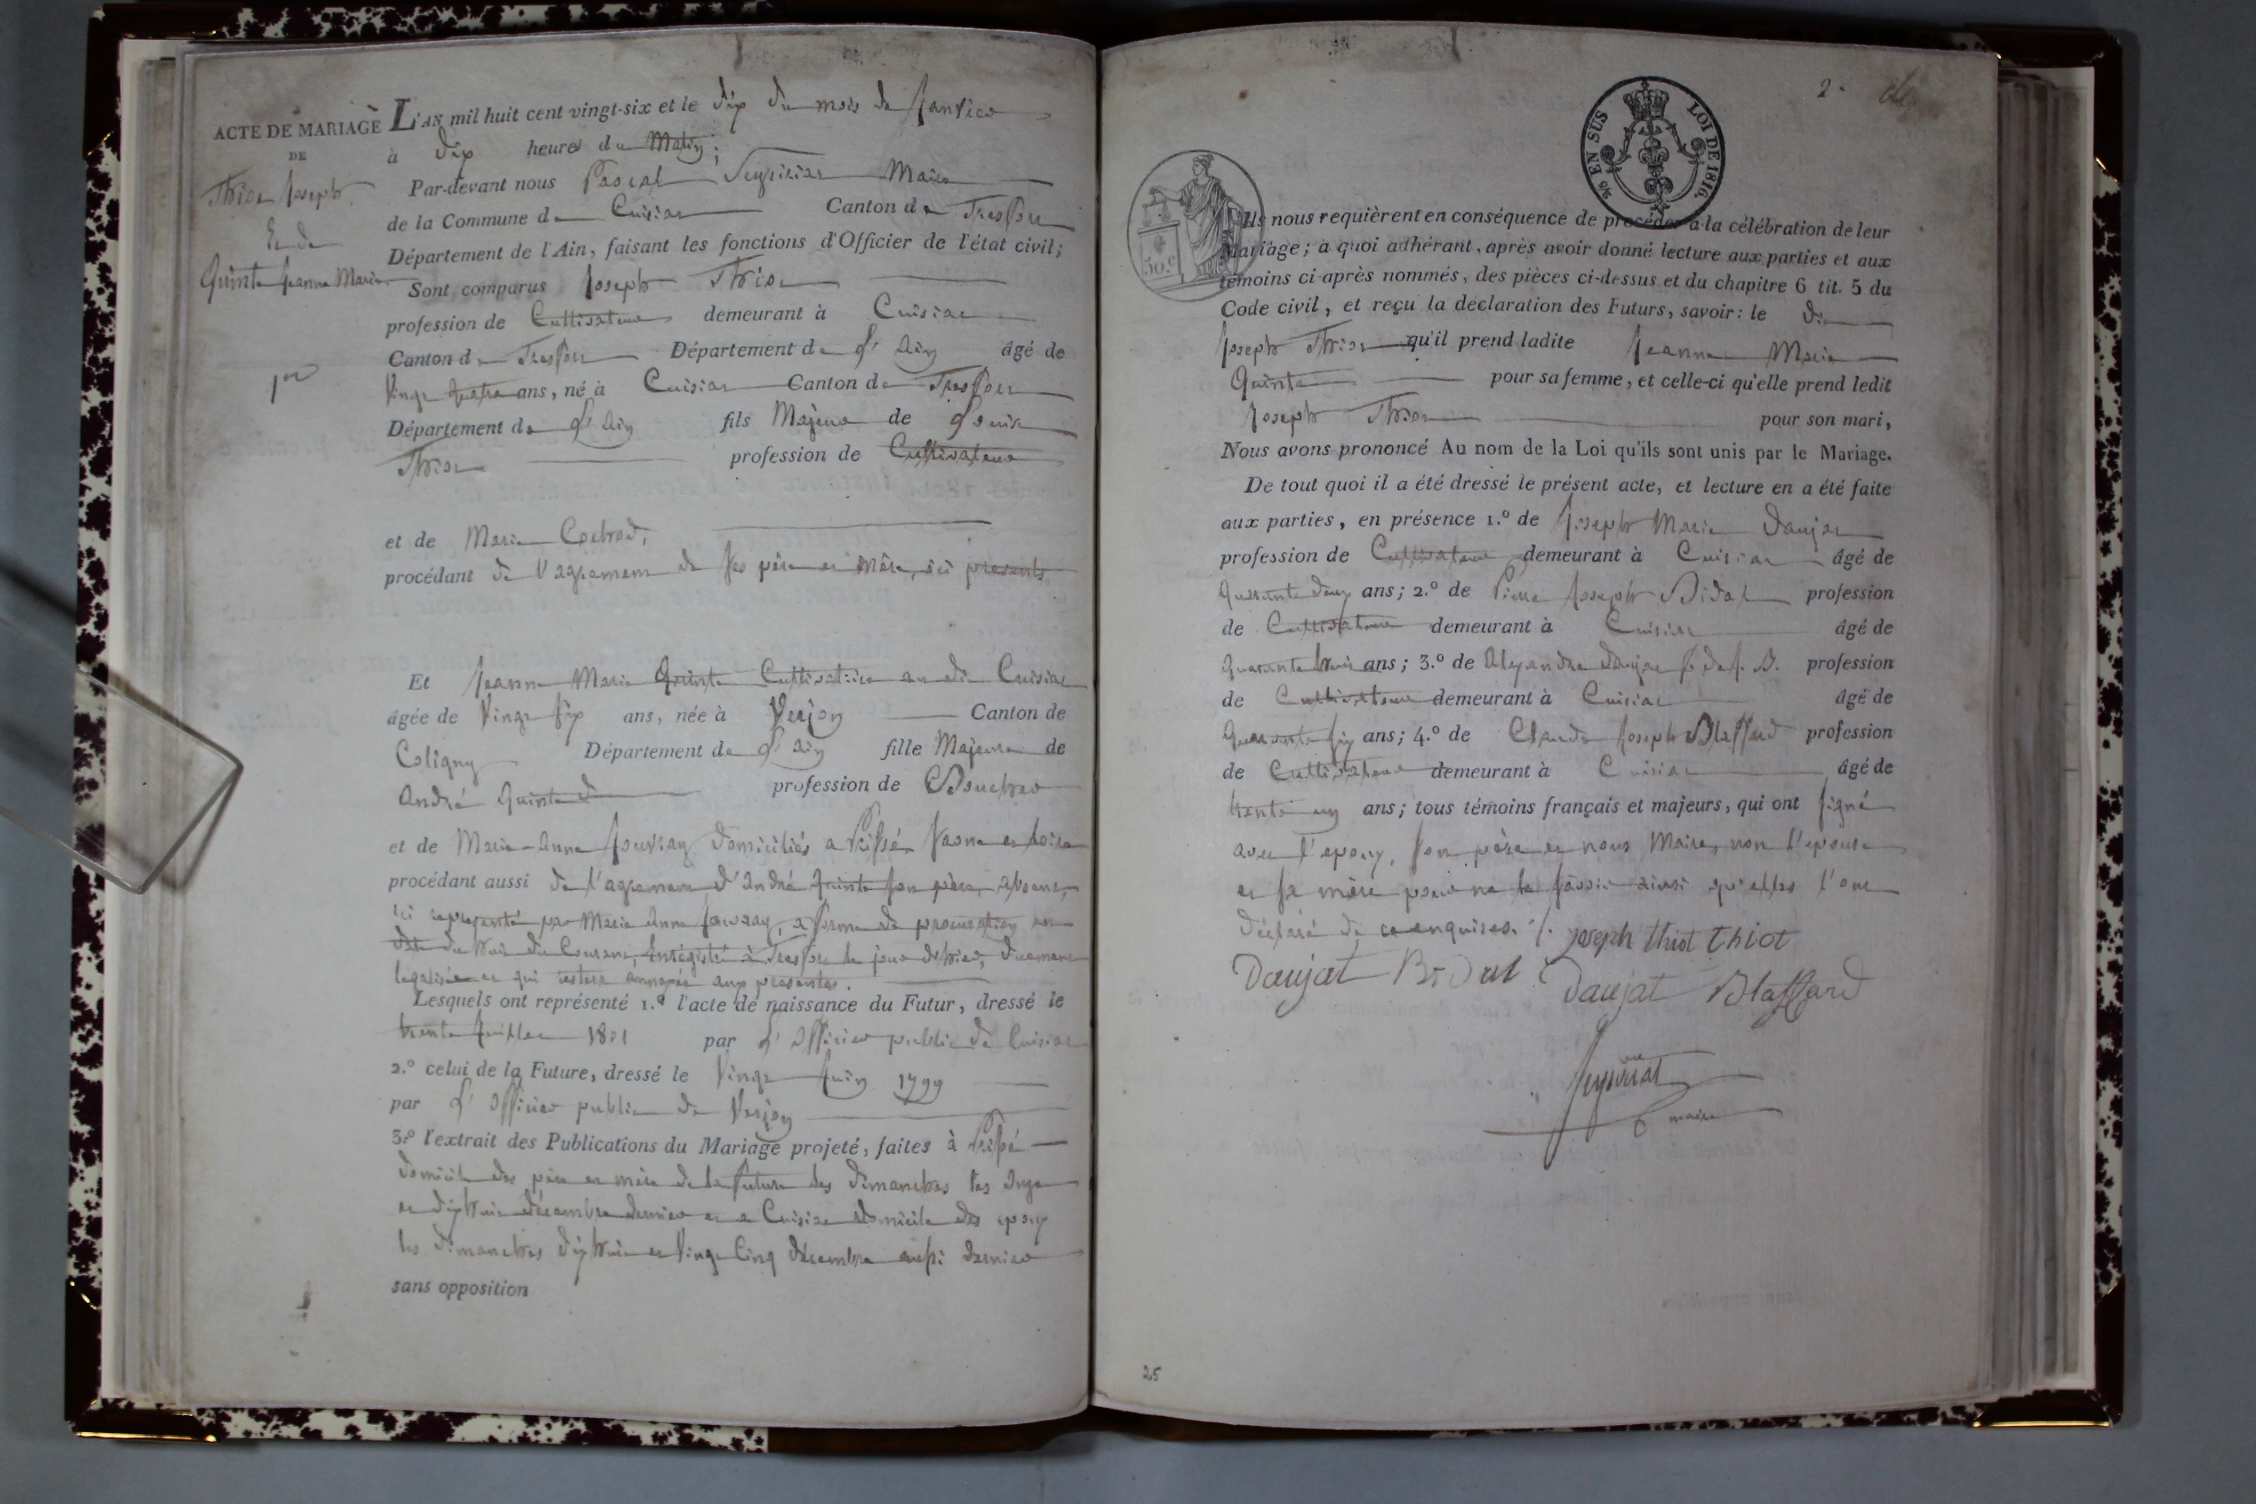 ACTE DE MARIAGE
DE
Thiot Joseph
Et de
Quinte Jeanne Marie
1er
L'AN mil huit cent vingt-six et le dix du mois de Janvier
à dix heures du Matin;
Par-devant nous Pascal Maire
de la Commune de Cuisiat Canton de Treffort
Département de l'Ain, faisant les fonctions d'Officier de l'état civil;
Sont comparus Joseph Thiot
profession de Cultivateur demeurant à Cuisiat
Canton de Treffort Département de L'Ain âgé de
Vingt quatre ans, né à Cuisiat Canton de Treffort
Département de L'Ain fils Majeur de Louis
Thiot profession de Cultivateur
et de Marie
procédant de l'agrément de ses père et mère, ici présents
Et Jeanne Marie Quinte Cultivatrice au dit Cuisiat
âgée de Vingt six ans, née à Verjon Canton de
Coligny Département de L'Ain fille Majeure de
André Quinte profession de Boucher
et de Marie-Anne domiciliés a Saone et Loire
procédant aussi de l'agrément d'André Quinte son père, absent,
ici représenté par Marie Anne a forme de procuration en
date du huit du Courant, Enregistré à Treffort le jour d'hier, duement
legalisée et qui restera annexée aux presentes.
Lesquels ont représenté 1.º l'acte de naissance du Futur, dressé le
trente Juillet 1801 par L'officier public de Cuisiat
2.º celui de la Future, dressé le Vingt Juin 1799
par L'officier public de Verjon
3.º l'extrait des Publications du Mariage projeté, faites à
domicile des père et mère de la future les dimanches les onze
et dix huit décembre dernier et a Cuisiat domicile des epoux
les dimanches dix huit et Vingt Cinq décembre aussi dernier
sans opposition
2.
EN SUS LOI DE 1816.
50.c
Ils nous requièrent en conséquence de procéder à la célébration de leur
Mariage; à quoi adhérant, après avoir donné lecture aux parties et aux
témoins ci-après nommés, des pièces ci-dessus et du chapitre 6 tit. 5 du
Code civil, et reçu la déclaration des Futurs, savoir: le dit
Joseph Thiot qu'il prend ladite Jeanne Marie
Quinte pour sa femme, et celle-ci qu'elle prend ledit
Joseph Thiot pour son mari,
Nous avons prononcé Au nom de la Loi qu'ils sont unis par le Mariage.
De tout quoi il a été dressé le présent acte, et lecture en a été faite
aux parties, en présence 1.º de Joseph Marie Daujat
profession de Cultivateur demeurant à Cuisiat âgé de
Quarante deux ans; 2.º de Pierre Joseph Bidal profession
de Cultivateur demeurant à Cuisiat âgé de
Quarante trois ans; 3.º de Alexandre Daujat profession
de Cultivateur demeurant à Cuisiat âgé de
Quarante six ans; 4.º de Claude Joseph Blaffard profession
de Cultivateur demeurant à Cuisiat âgé de
trente un ans; tous témoins français et majeurs, qui ont signé
avec l'epoux, son père et nous Maire, non l'epouse
et sa mère pour ne le savoir ainsi qu'elles l'ont
déclaré de ce enquises. joseph thiot thiot
Daujat Bidal Daujat Blaffard
maire
25